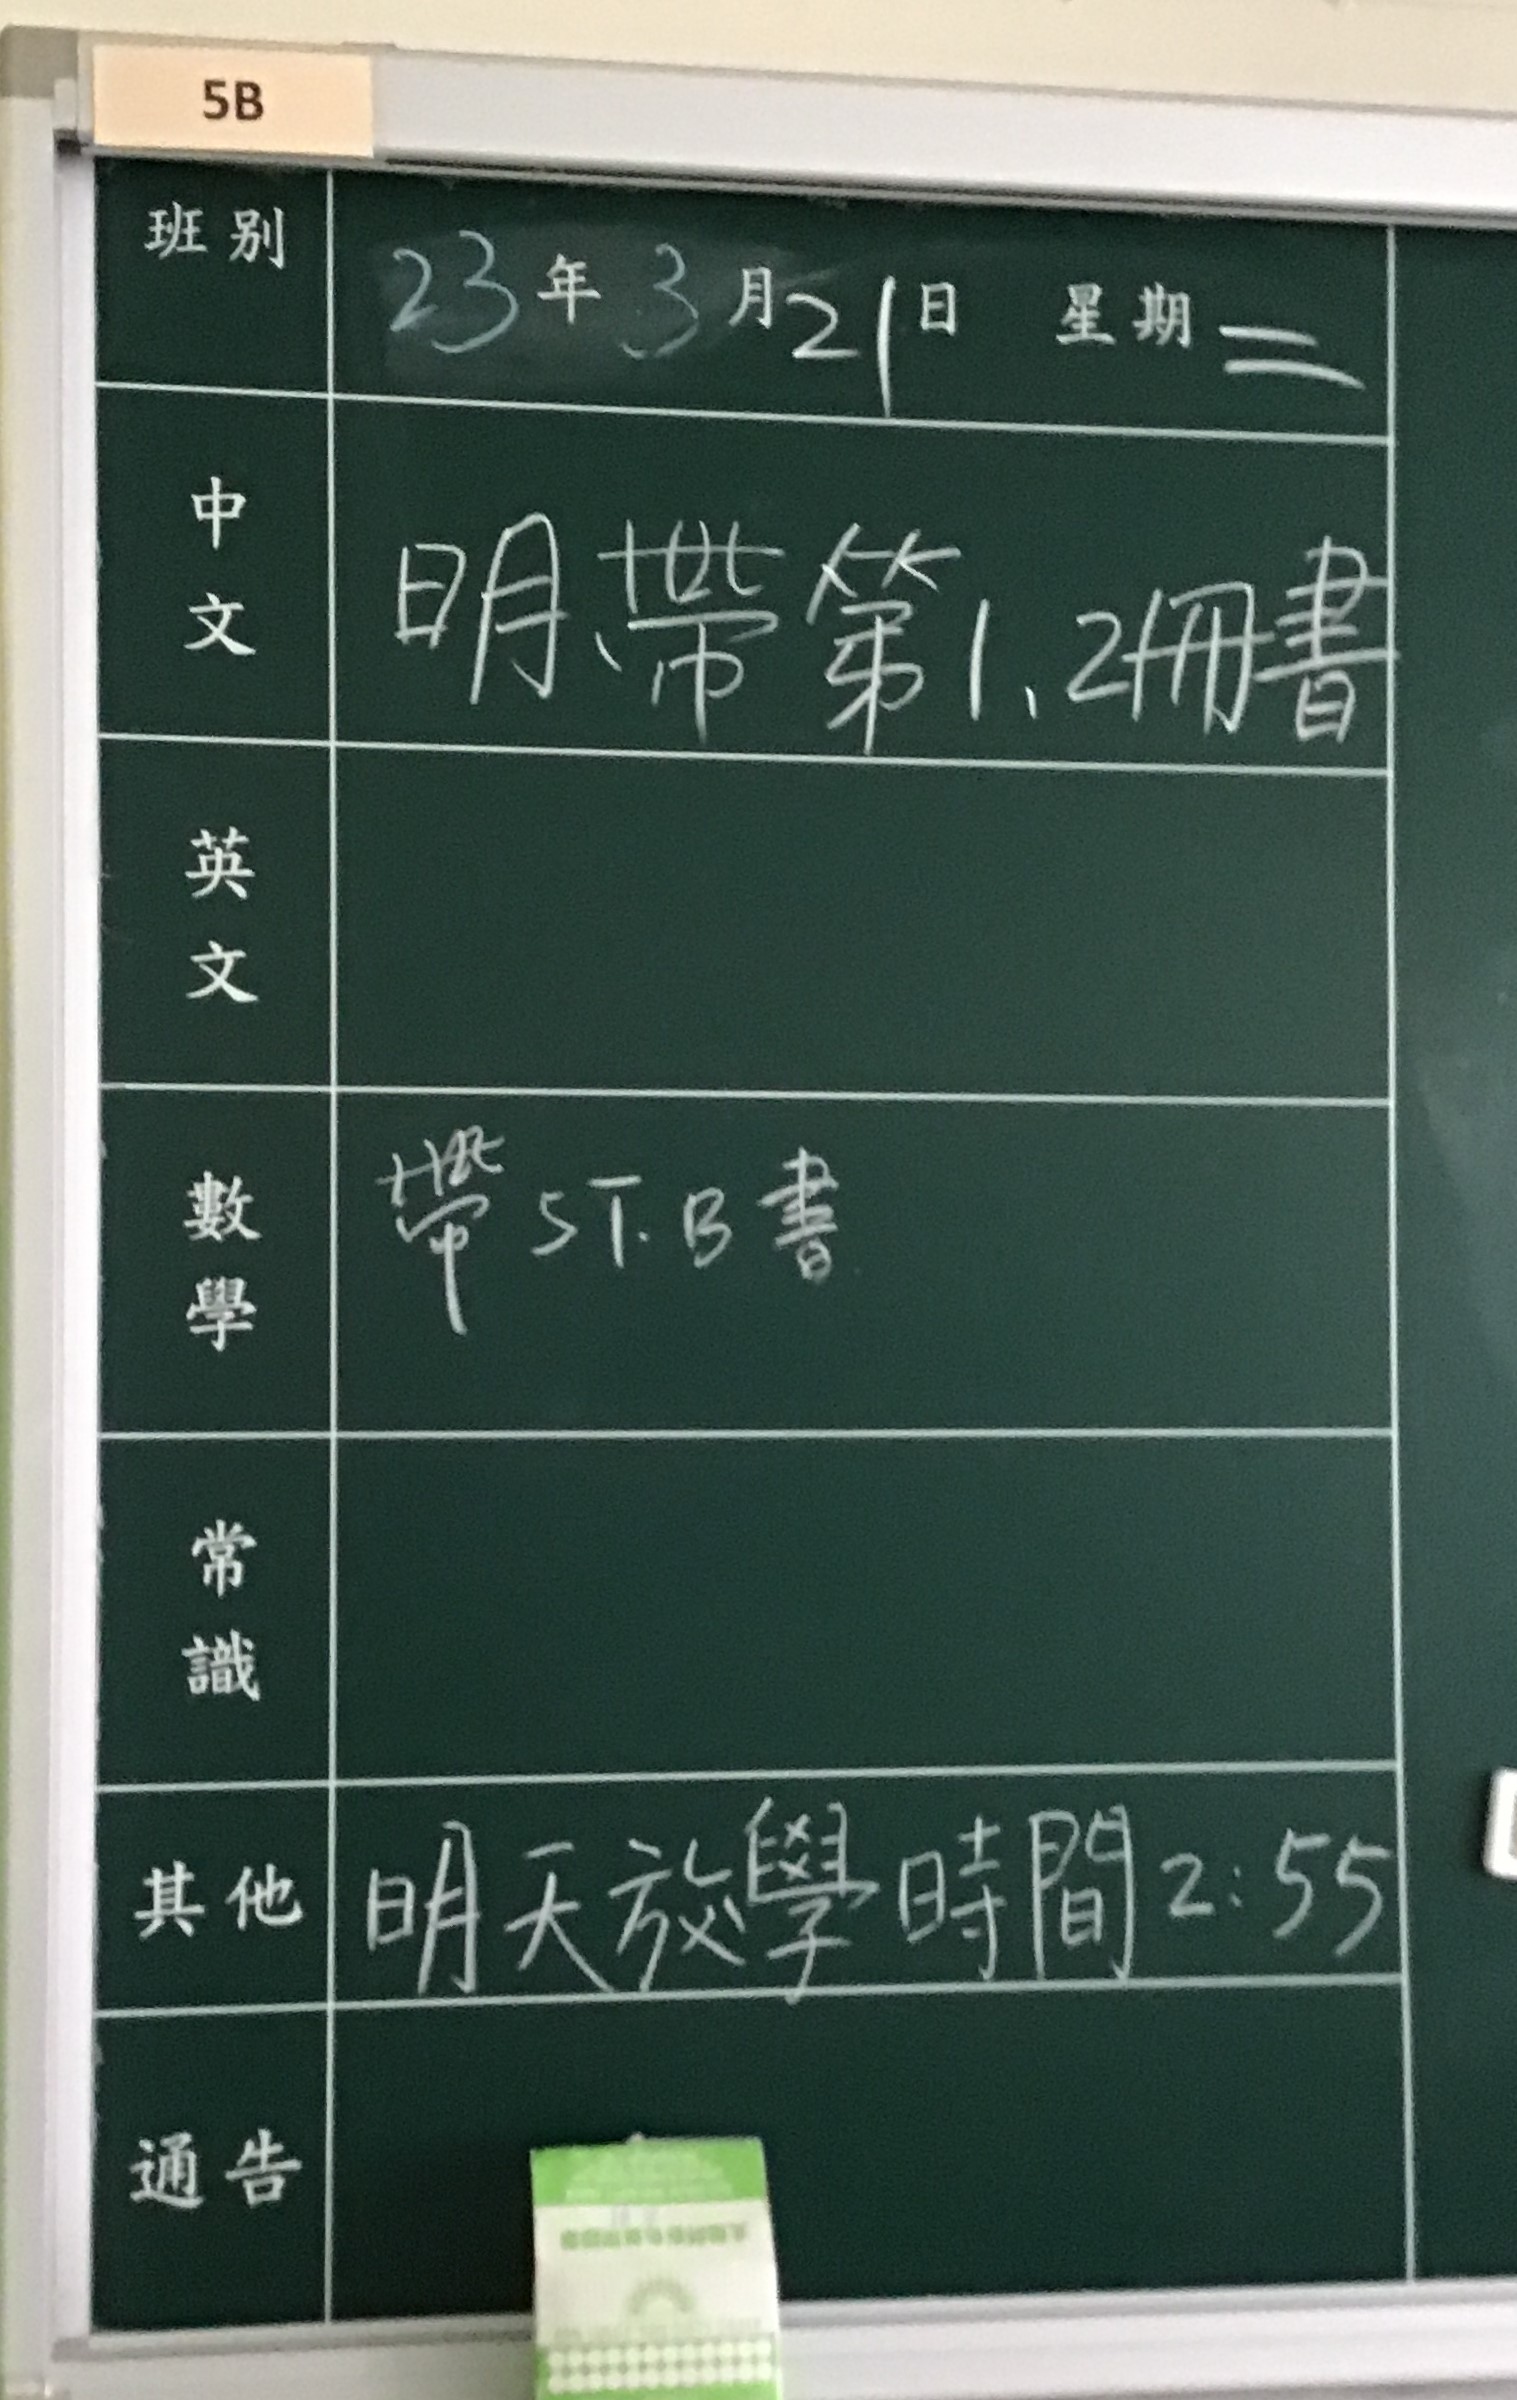 5B
班別 23年3月21日 星期二
中文 明帶第1、2冊書
英文
數學 帶5T.B書
常識
其他 明天放學時間2:55
通告